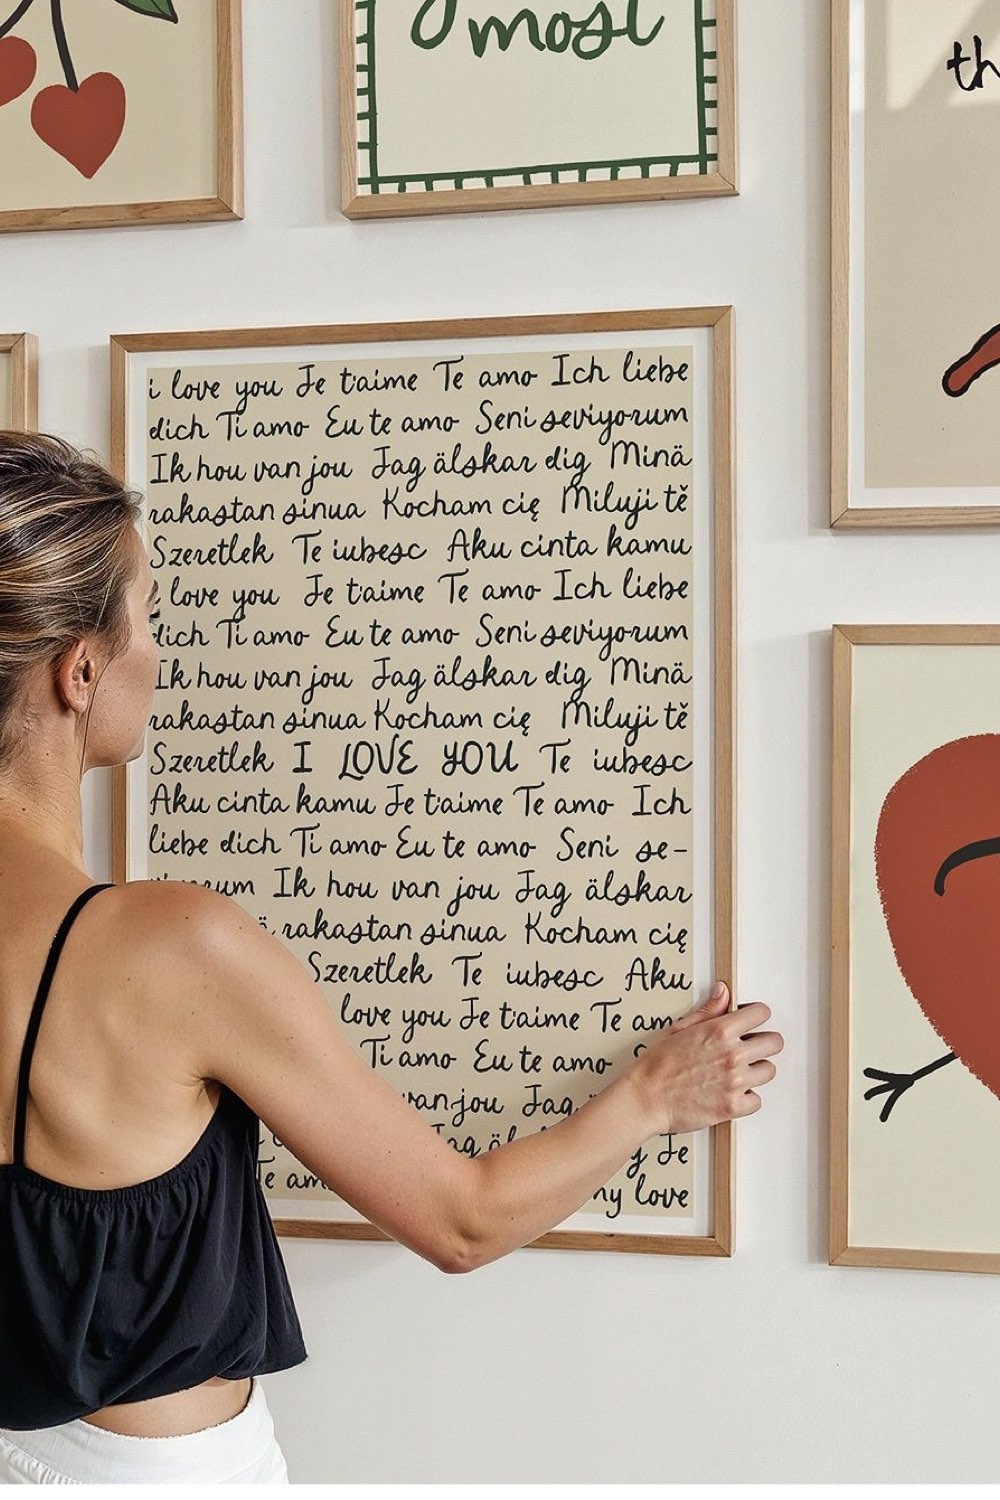 most
th
i love you Je t'aime Te amo Ich liebe
dich Ti amo Eu te amo Seni seviyorum
Ik hou van jou Jag älskar dig Minä
rakastan sinua Kocham cię Miluji tě
Szeretlek Te iubesc Aku cinta kamu
love you Je t'aime Te amo Ich liebe
dich Ti amo Eu te amo Seni seviyorum
Ik hou van jou Jag älskar dig Minä
rakastan sinua Kocham cię Miluji tě
Szeretlek I LOVE YOU Te iubesc
Aku cinta kamu Je t'aime Te amo Ich
liebe dich Ti amo Eu te amo Seni se-
Ik hou van jou Jag älskar
rakastan sinua Kocham cię
Szeretlek Te iubesc Aku
love you Je t'aime Te am
Ti amo Eu te amo
van jou Jag
Jag äl
Je
Te am my love